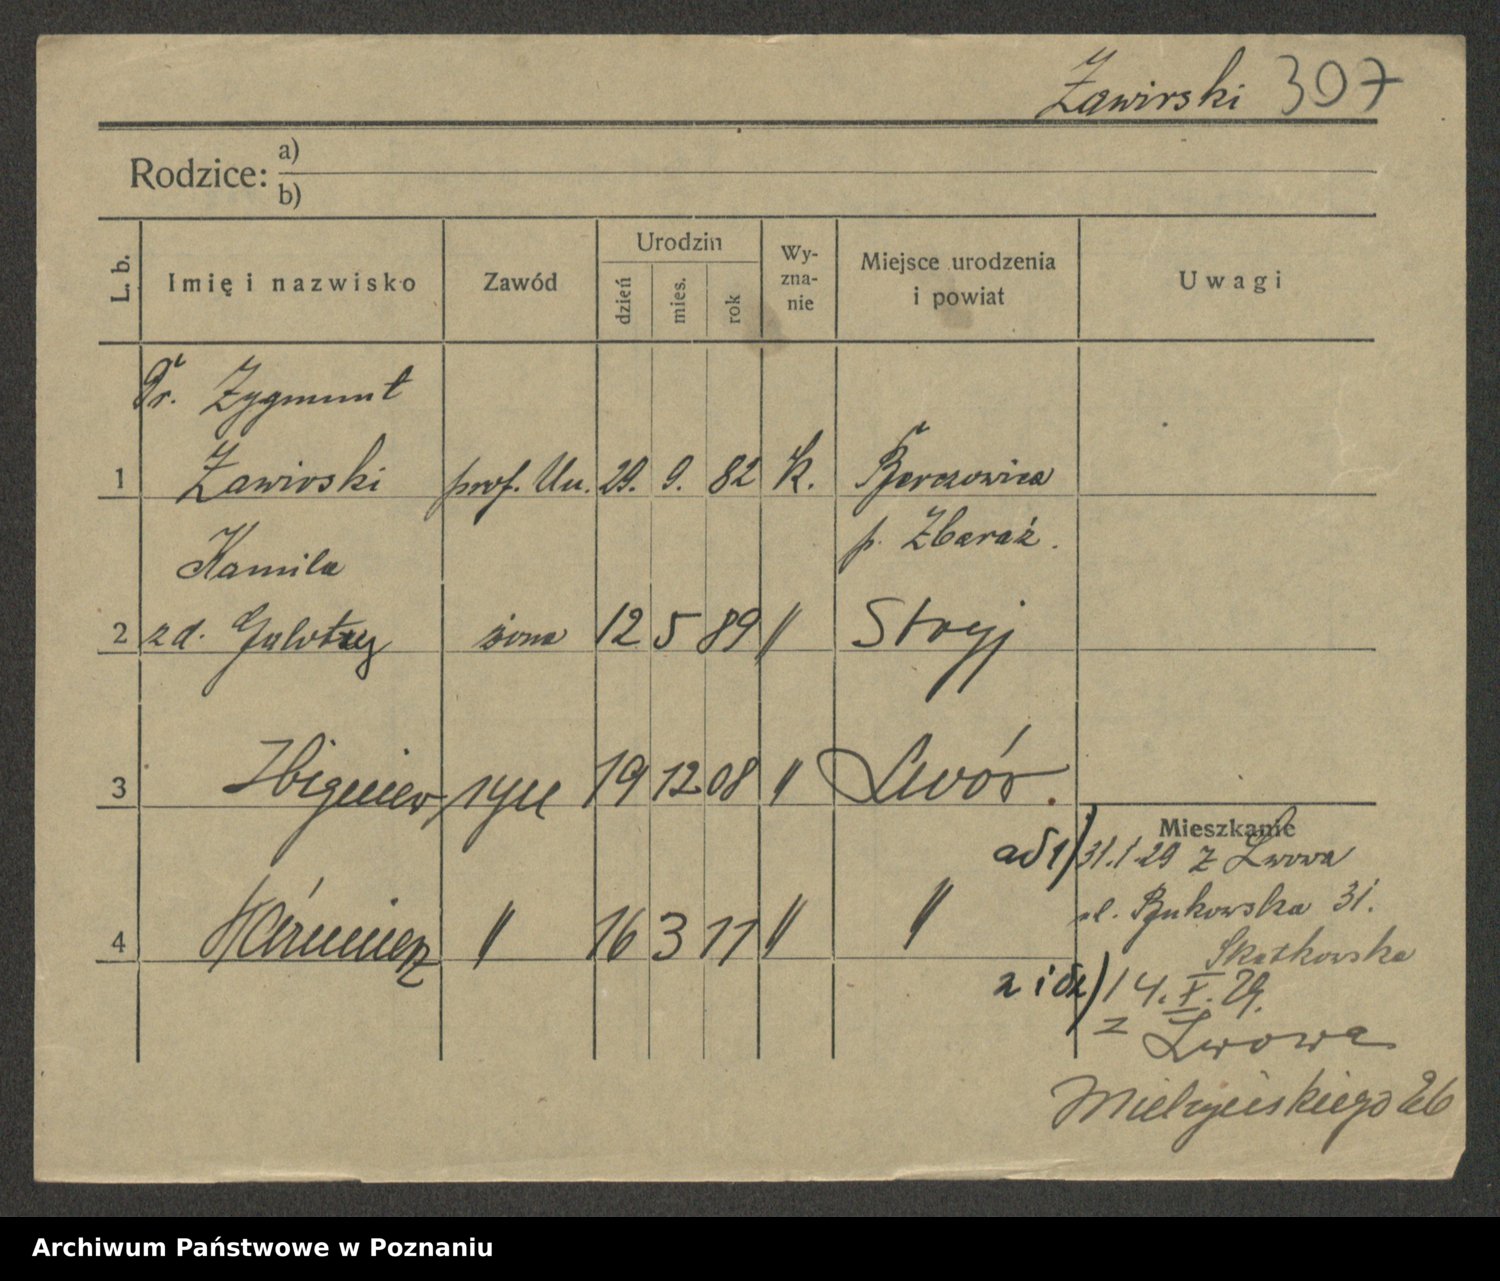 Zawirski 307
Rodzice: a)
b)
L. b.
Imię i nazwisko
Zawód
Urodzin
dzień
mies.
rok
Wy-
zna-
nie
Miejsce urodzenia
i powiat
Uwagi
Dr. Zygmunt
1 Zawirski prof. Un. 29. 9. 82 k. Berezowica
p. Zbaraż.
Kamila
2 zd. żona 12 5 89 " Stryj
3 Zbigniew syn 19 12 08 " Lwów.
Mieszkanie
ad 1) 31.1.29 z Lwowa
ul. Bukowska 31.
4 Kazimierz " 16 3 11 " "
Skatkowska
14. X. 29.
z Lwowa
Mielżyńskiego 26
Archiwum Państwowe w Poznaniu